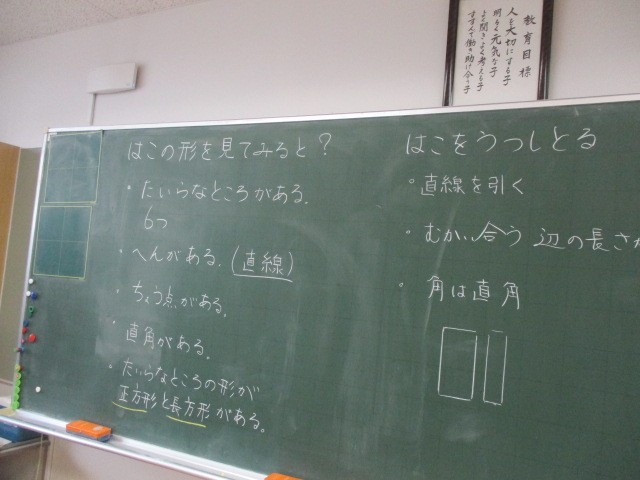 教育目標
人を大切にする子
明るく元気な子
よく聞きよく考える子
すすんで働き助け合う子
はこの形を見てみると?
・たいらなところがある。
6つ
・へんがある。(直線)
・ちょう点がある。
・直角がある。
・たいらなところの形が
正方形と長方形がある。
はこをうつしとる
・直線を引く
・むかい合う辺の長さが
・角は直角